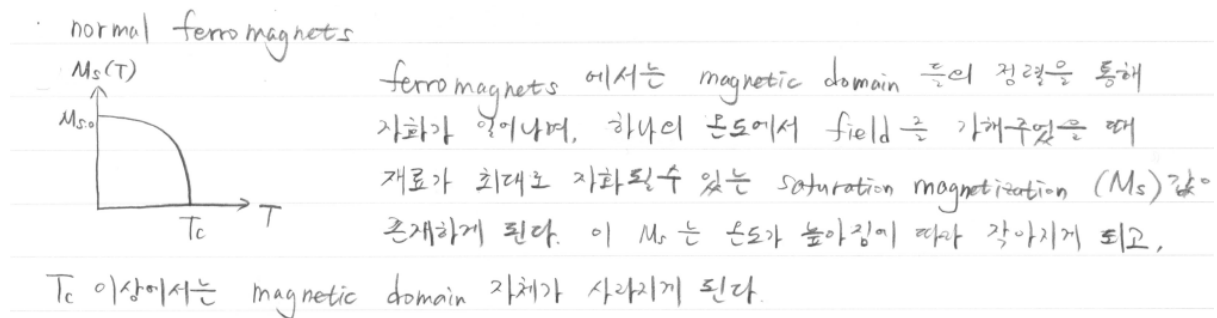 · normal ferromagnets
Ms(T)
Ms.o
T
Tc
ferromagnets 에서는 magnetic domain 들의 정렬을 통해
자화가 일어나며, 하나의 온도에서 field 를 가해주었을 때
재료가 최대로 자화될수 있는 saturation magnetization (Ms) 값이
존재하게 된다. 이 Ms 는 온도가 높아짐에 따라 작아지게 되고,
Tc 이상에서는 magnetic domain 자체가 사라지게 된다.